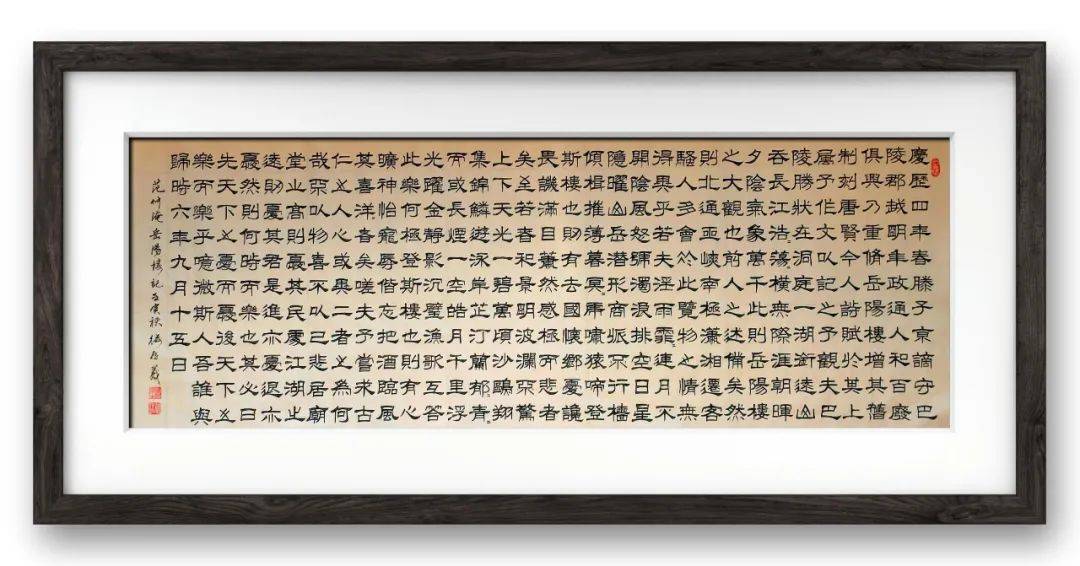 慶歷四年春滕子京謫守巴
陵郡越明年政通人和百廢
俱興乃重脩岳陽樓增其舊
制刻唐賢今人詩賦於其上
屬予作文以記之予觀夫巴
陵勝狀在洞庭一湖銜遠山
吞長江浩蕩橫無際涯朝暉
夕陰氣象萬千此則岳陽樓
之大觀也前人之述備矣然
則北通巫峽南極瀟湘遷客
騷人多會於此覽物之情無
得異乎若夫淫雨霏連月不
開陰風怒號濁浪排空日星
隱曜山岳潛形商旅不行檣
傾楫摧薄暮冥虎嘯猿啼登
斯樓也則有去國懷鄉憂讒
畏譏滿目蕭然感極而悲者
矣至若春和景明波瀾不驚
上下天光一碧萬頃沙鷗翔
集錦鱗遊泳岸芷汀蘭郁青
而或長煙一空皓月千里浮
光躍金靜影沉璧漁歌互答
此樂何極登斯樓也則有心
曠神怡寵辱偕忘把酒臨風
其喜洋者矣嗟夫予嘗求古
仁之人心或異二者之為何
哉不以物喜不以己悲居廟
堂之高則憂其民處江湖之
遠則憂其君是進亦憂退亦
憂然則何時而樂其必曰
先天下之憂而憂後天下之
樂而樂乎噫微斯人吾誰與
歸時六年九月十五日
范仲淹岳陽樓記